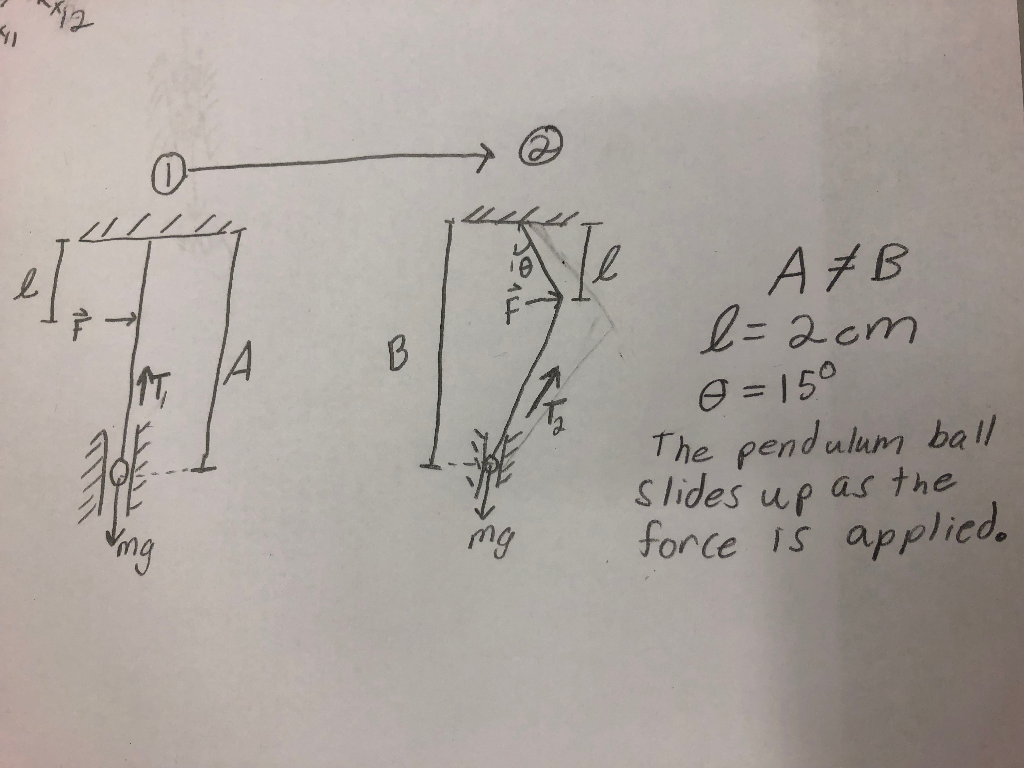 x12
x11
① → ②
l
F→
T₁
A
mg
B
θ
F→
l
T₂
mg
A ≠ B
l = 2 cm
θ = 15°
The pendulum ball
slides up as the
force is applied.